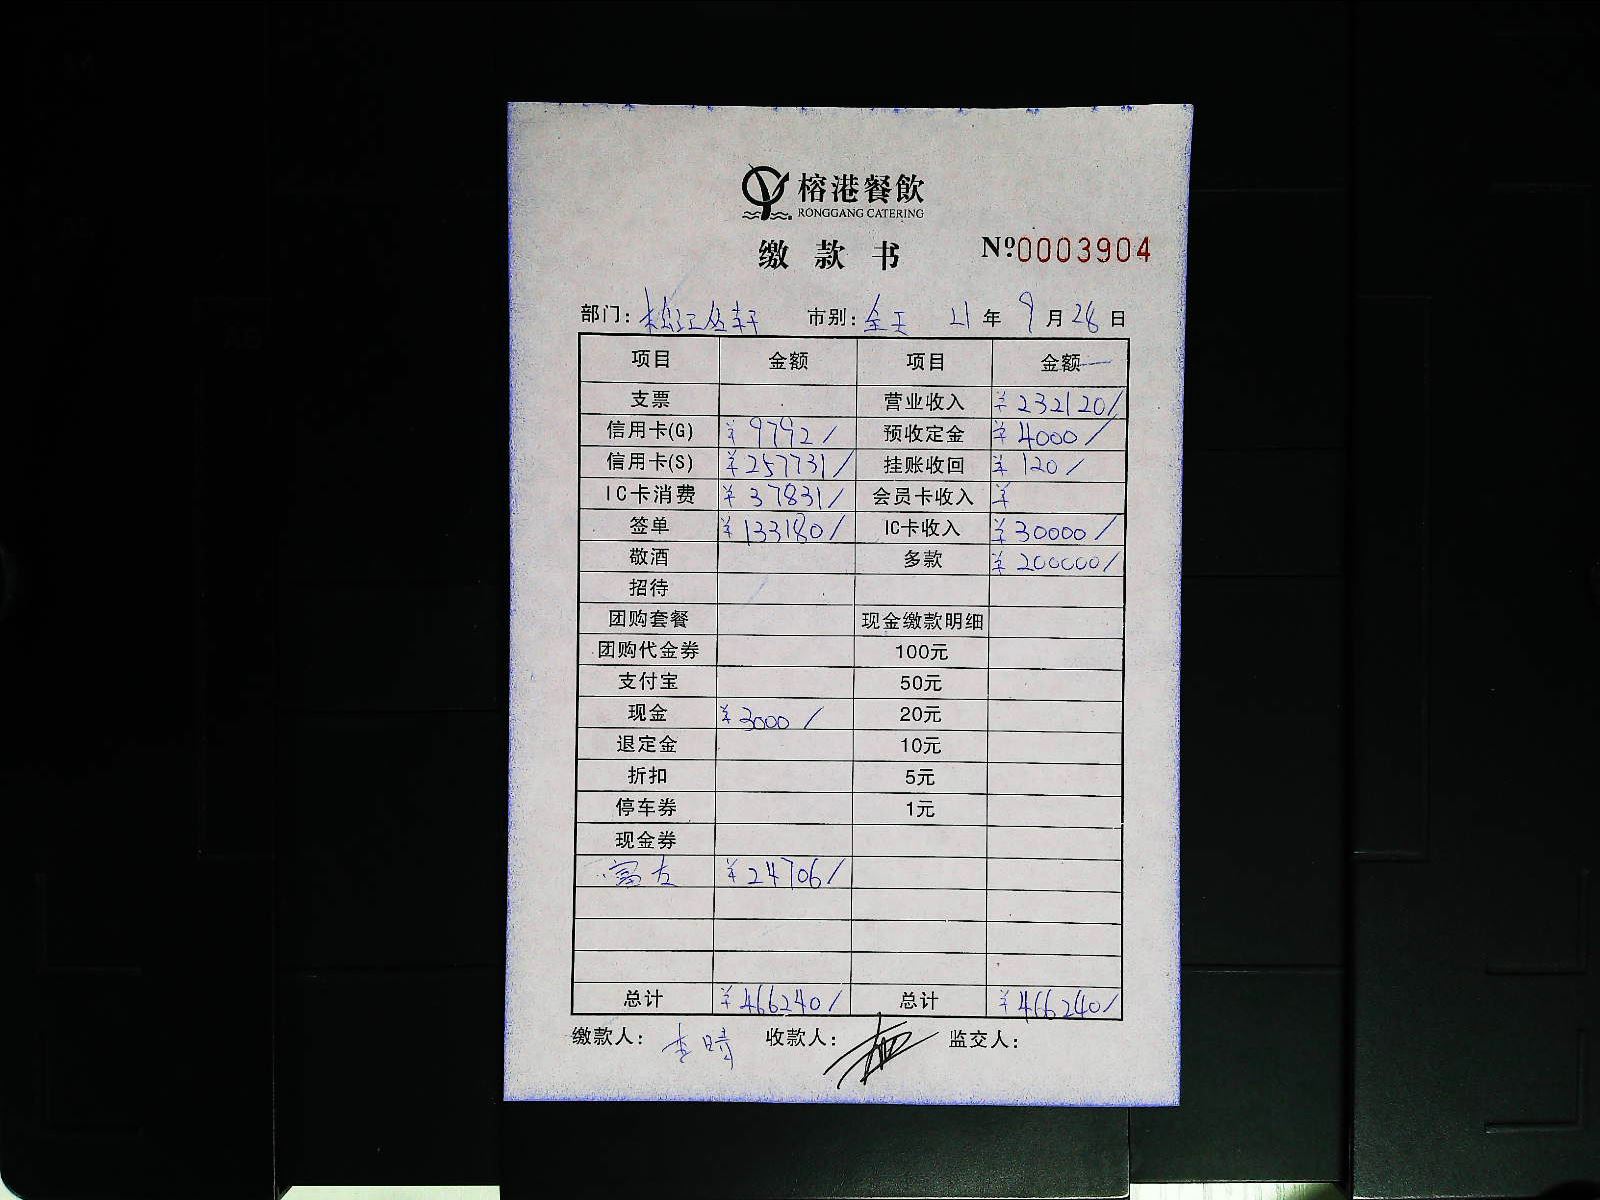 榕港餐飲
RONGGANG CATERING
缴款书 №0003904
部门: 松江 轩 市别: 全天 21年9月28日
项目 金额 项目 金额
支票 营业收入 ¥232120/
信用卡(G) ¥9792/ 预收定金 ¥4000/
信用卡(S) ¥257731/ 挂账收回 ¥120/
IC卡消费 ¥37831/ 会员卡收入 ¥
签单 ¥133180/ IC卡收入 ¥30000/
敬酒 多款 ¥200000/
招待
团购套餐 现金缴款明细
团购代金券 100元
支付宝 50元
现金 ¥3000/ 20元
退定金 10元
折扣 5元
停车券 1元
现金券
富友 ¥24706/
总计 ¥466240/ 总计 ¥466240/
缴款人: 李晴 收款人: 监交人: